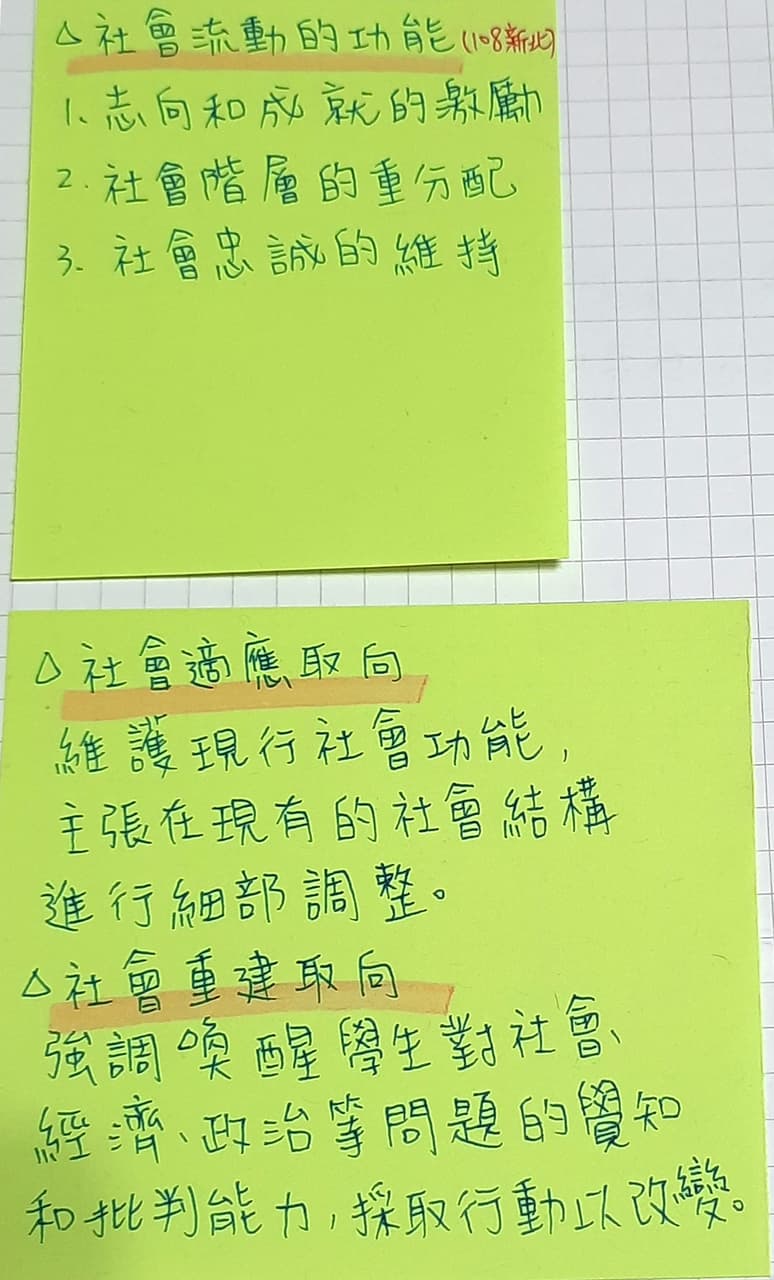 △社會流動的功能(108新北)
1. 志向和成就的激勵
2. 社會階層的重分配
3. 社會忠誠的維持
△社會適應取向
維護現行社會功能,
主張在現有的社會結構
進行細部調整。
△社會重建取向
強調喚醒學生對社會、
經濟、政治等問題的覺知
和批判能力,採取行動以改變。